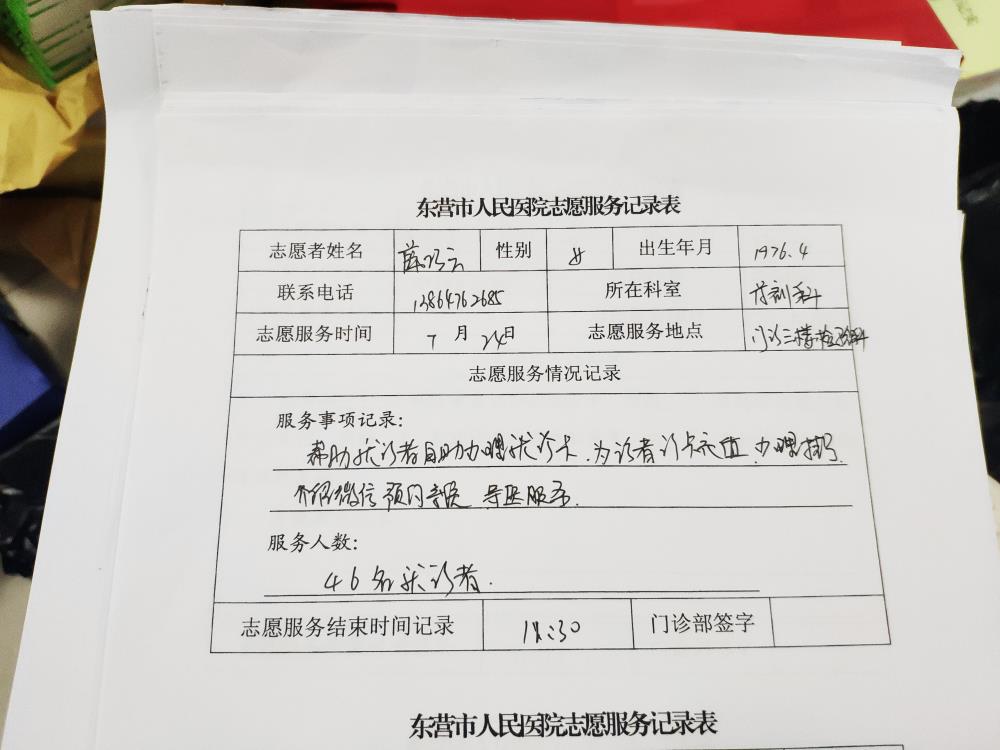 东营市人民医院志愿服务记录表
志愿者姓名 薛巧云 性别 女 出生年月 1976.4
联系电话 13864762685 所在科室 培训科
志愿服务时间 7月24日 志愿服务地点 门诊三楼
志愿服务情况记录
服务事项记录:
帮助就诊者自助办理就诊卡、为诊者诊卡充值、办理挂号
介绍微信预约 导医服务.
服务人数:
46名就诊者.
志愿服务结束时间记录 :30 门诊部签字
东营市人民医院志愿服务记录表